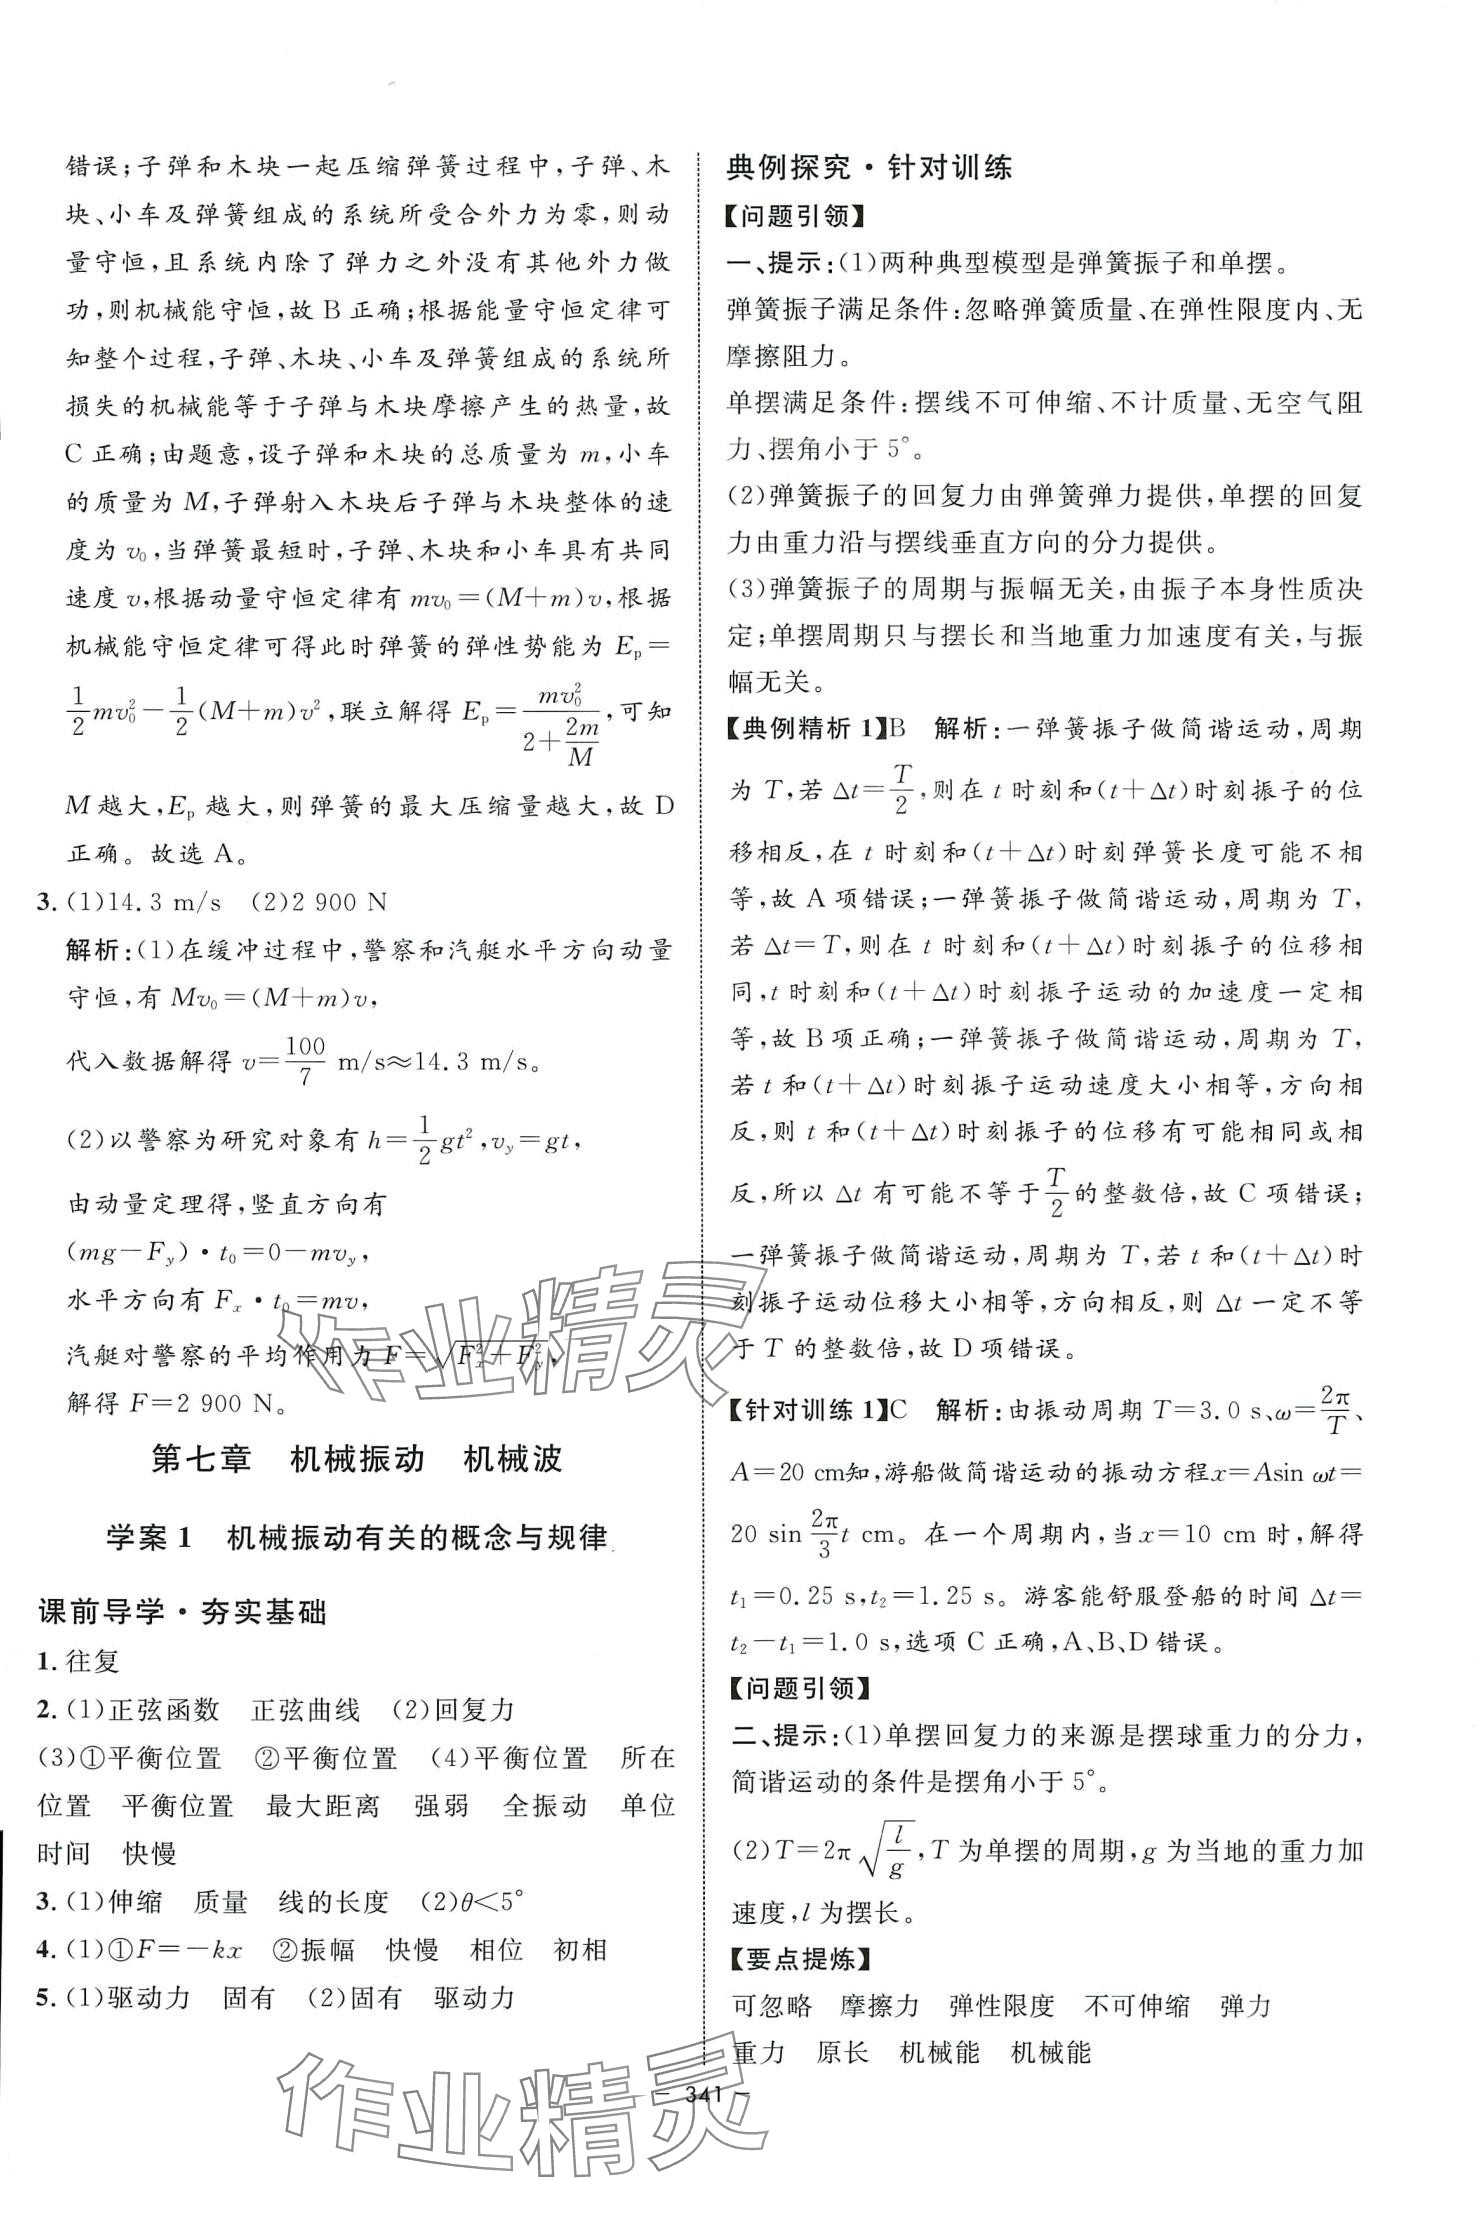 错误;子弹和木块一起压缩弹簧过程中,子弹、木
块、小车及弹簧组成的系统所受合外力为零,则动
量守恒,且系统内除了弹力之外没有其他外力做
功,则机械能守恒,故 B 正确;根据能量守恒定律可
知整个过程,子弹、木块、小车及弹簧组成的系统所
损失的机械能等于子弹与木块摩擦产生的热量,故
C 正确;由题意,设子弹和木块的总质量为 m,小车
的质量为 M,子弹射入木块后子弹与木块整体的速
度为 v₀,当弹簧最短时,子弹、木块和小车具有共同
速度 v,根据动量守恒定律有 mv₀=(M+m)v,根据
机械能守恒定律可得此时弹簧的弹性势能为 Eₚ=
\frac{1}{2}mv_0^2-\frac{1}{2}(M+m)v²,联立解得 Eₚ=\frac{mv_0^2}{2+\frac{2m}{M}},可知
M 越大,Eₚ 越大,则弹簧的最大压缩量越大,故 D
正确。故选 A。
3. (1)14.3 m/s (2)2 900 N
解析:(1)在缓冲过程中,警察和汽艇水平方向动量
守恒,有 Mv₀=(M+m)v,
代入数据解得 v=\frac{100}{7} m/s≈14.3 m/s。
(2)以警察为研究对象有 h=\frac{1}{2}gt²,v_y=gt,
由动量定理得,竖直方向有
(mg-F_y)·t₀=0-mv_y,
水平方向有 Fₓ·t₀=mv,
汽艇对警察的平均作用力 F=\sqrt{F_x^2+F_y^2},
解得 F=2 900 N。
第七章 机械振动 机械波
学案 1 机械振动有关的概念与规律
课前导学·夯实基础
1. 往复
2. (1)正弦函数 正弦曲线 (2)回复力
(3)①平衡位置 ②平衡位置 (4)平衡位置 所在
位置 平衡位置 最大距离 强弱 全振动 单位
时间 快慢
3. (1)伸缩 质量 线的长度 (2)θ<5°
4. (1)①F=-kx ②振幅 快慢 相位 初相
5. (1)驱动力 固有 (2)固有 驱动力
典例探究·针对训练
【问题引领】
一、提示:(1)两种典型模型是弹簧振子和单摆。
弹簧振子满足条件:忽略弹簧质量、在弹性限度内、无
摩擦阻力。
单摆满足条件:摆线不可伸缩、不计质量、无空气阻
力、摆角小于 5°。
(2)弹簧振子的回复力由弹簧弹力提供,单摆的回复
力由重力沿与摆线垂直方向的分力提供。
(3)弹簧振子的周期与振幅无关,由振子本身性质决
定;单摆周期只与摆长和当地重力加速度有关,与振
幅无关。
【典例精析 1】B 解析:一弹簧振子做简谐运动,周期
为 T,若 Δt=\frac{T}{2},则在 t 时刻和(t+Δt)时刻振子的位
移相反,在 t 时刻和(t+Δt)时刻弹簧长度可能不相
等,故 A 项错误;一弹簧振子做简谐运动,周期为 T,
若 Δt=T,则在 t 时刻和(t+Δt)时刻振子的位移相
同,t 时刻和(t+Δt)时刻振子运动的加速度一定相
等,故 B 项正确;一弹簧振子做简谐运动,周期为 T,
若 t 和(t+Δt)时刻振子运动速度大小相等,方向相
反,则 t 和(t+Δt)时刻振子的位移有可能相同或相
反,所以 Δt 有可能不等于\frac{T}{2}的整数倍,故 C 项错误;
一弹簧振子做简谐运动,周期为 T,若 t 和(t+Δt)时
刻振子运动位移大小相等,方向相反,则 Δt 一定不等
于 T 的整数倍,故 D 项错误。
【针对训练 1】C 解析:由振动周期 T=3.0 s、ω=\frac{2π}{T}、
A=20 cm知,游船做简谐运动的振动方程x=Asin ωt=
20 sin \frac{2π}{3}t cm。在一个周期内,当 x=10 cm 时,解得
t₁=0.25 s,t₂=1.25 s。游客能舒服登船的时间 Δt=
t₂-t₁=1.0 s,选项 C 正确,A、B、D 错误。
【问题引领】
二、提示:(1)单摆回复力的来源是摆球重力的分力,
简谐运动的条件是摆角小于 5°。
(2)T=2π\sqrt{\frac{l}{g}},T 为单摆的周期,g 为当地的重力加
速度,l 为摆长。
【要点提炼】
可忽略 摩擦力 弹性限度 不可伸缩 弹力
重力 原长 机械能 机械能
— 341 —
作业精灵
作业精灵